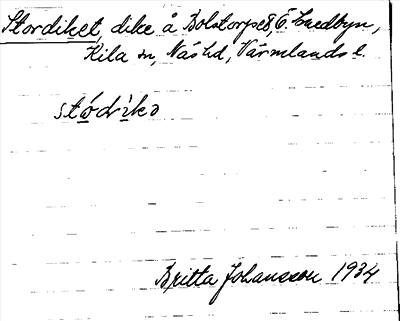 Stordiket, dike å Bolstorps 8, Ö. Lnedbyn,
Kila sn, Näs hd, Värmlands l.
stódìkə
Britta Johansson 1934